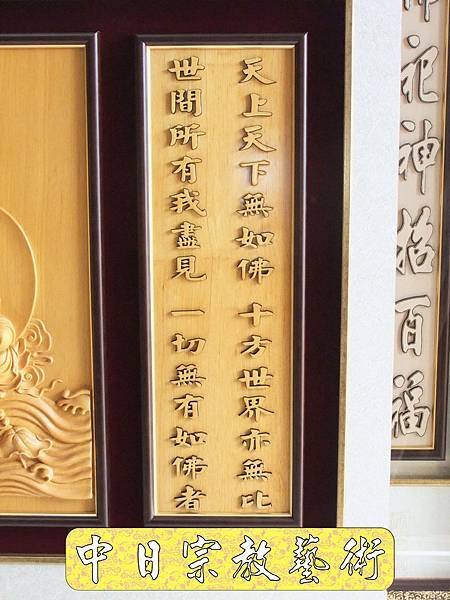 天上天下無如佛 十方世界亦無比
世間所有我盡見 一切無有如佛者
祀神招百福
中日宗教藝術